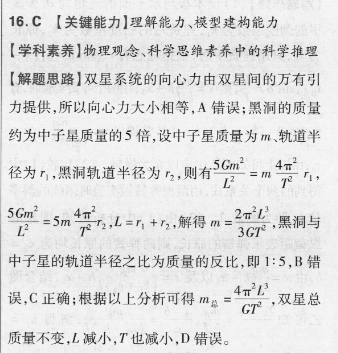 16. C 【关键能力】理解能力、模型建构能力
【学科素养】物理观念、科学思维素养中的科学推理
【解题思路】双星系统的向心力由双星间的万有引
力提供,所以向心力大小相等,A 错误;黑洞的质量
约为中子星质量的 5 倍,设中子星质量为 m、轨道半
径为 r₁,黑洞轨道半径为 r₂,则有 5Gm²/L² = m 4π²/T² r₁,
5Gm²/L² = 5m 4π²/T² r₂, L = r₁ + r₂,解得 m = 2π²L³/3GT²,黑洞与
中子星的轨道半径之比为质量的反比,即 1:5,B 错
误,C 正确;根据以上分析可得 m总 = 4π²L³/GT²,双星总
质量不变,L 减小,T 也减小,D 错误。